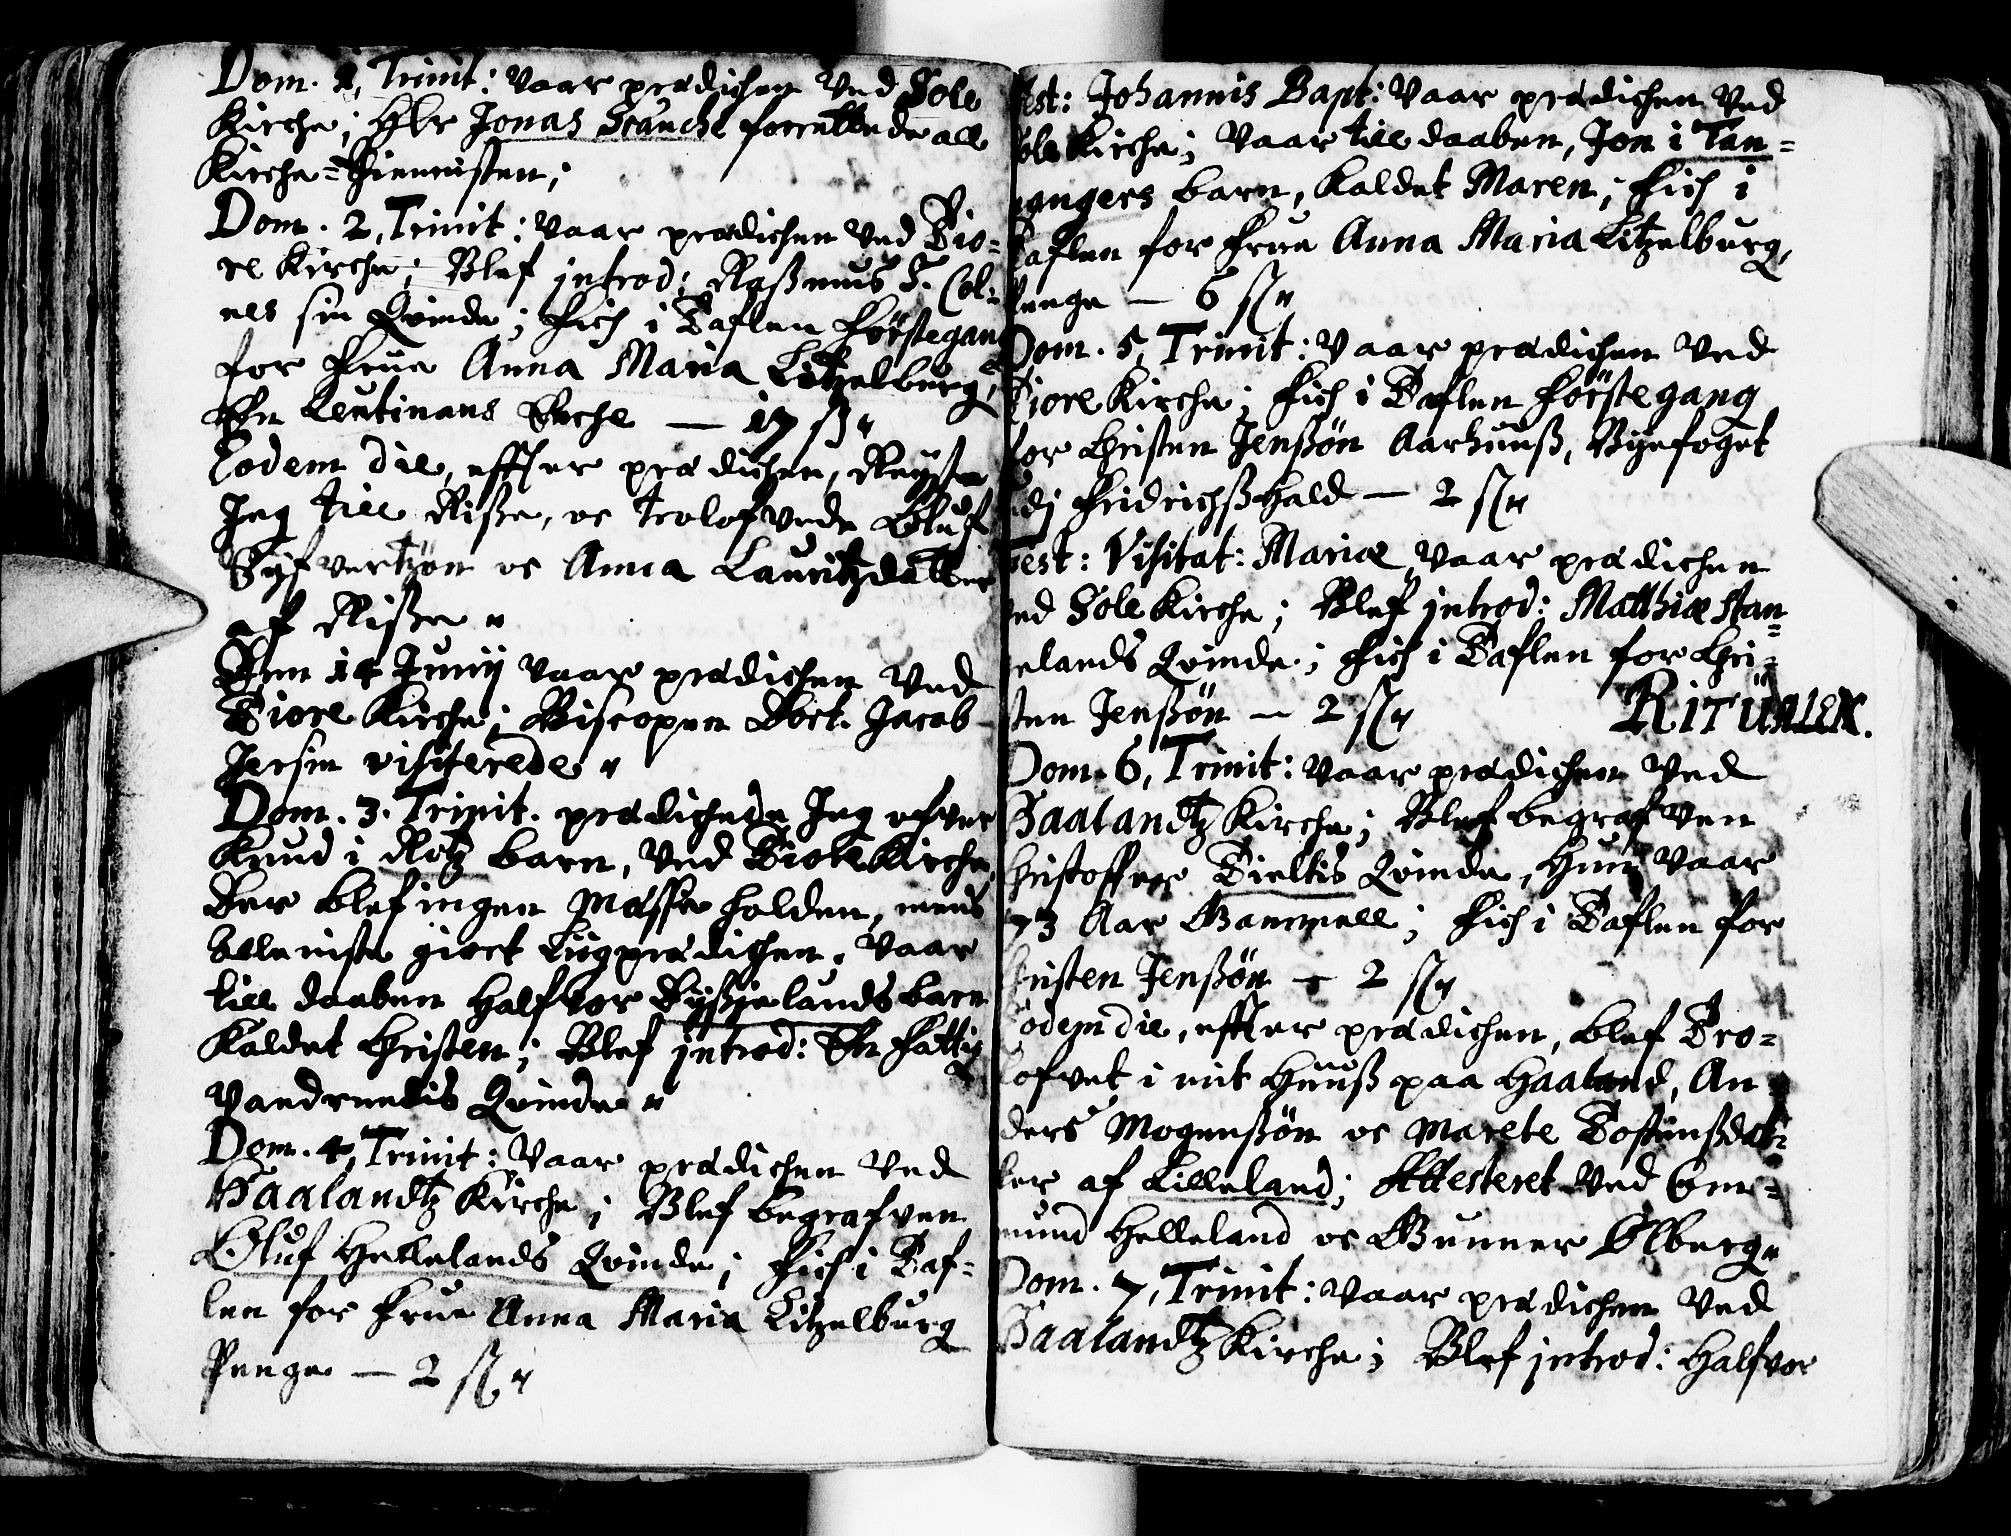 Dom. 1, Trinit: Vaar prædichen Ved Sole
Kirche; Hlr Jonas Scauche forrettede all
Kirche=thiennisten;
Dom. 2, Trinit: Vaar prædichen Ved Tio=
re Kirche; Blef introd: Raßmus S. Col=
nes sin Qvinde; Fich i Taflen förste gang
for Frue Anna Maria Litzelburg,
En Leutinans Enche — 17 ß"
Eodem die, effter prædichen, Reyste
Jeg till Riße, oc trolofvede Oluf
Syfvertzön oc Anna Lauritzdatter
af Riße "
Den 14 Junij Vaar prædichen Ved
Tiore Kirche; Biscopen Doct. Jacob
Jersin visiterede "
Dom. 3. Trinit. prædichede Jeg ofver
Knud i Rötz barn, Ved Tiore Kirche,
Der blef ingen Messe holden, mens
alleniste giort Liigprædichen. Vaar
till daaben Halfvor Byßielands barn
Kaldet Christen; Blef introd: En fattig
Vandrendis Qvinde "
Dom. 4, Trinit: Vaar prædichen Ved
Haalandtz Kirche; Blef begrafven
Oluf Hellelands Qvinde; Fich i Taf=
len for Frue Anna Maria Litzelburg
Penge — 2 ß "
Fest: Johannis Bapt: Vaar prædichen Ved
Sole Kirche; Vaar till daaben, Jon i Tan=
nangers barn, Kaldet Maren; Fich i
Taflen for Frue Anna Maria Litzelburg,
Penge — 6 ß "
Dom. 5, Trinit: Vaar prædichen Ved
Tiore Kirche; Fich i Taflen förste gang
for Christen Jenßön Aarhuuß, Byefoget
udj Fridrichßhald — 2 ß "
Fest: Visitat: Mariæ Vaar prædichen
Ved Sole Kirche; Blef introd: Matthiæ Stan=
gelands Qvinde; Fich i Taflen for Chri=
sten Jenßön — 2 ß "
RITUALEN.
Dom. 6, Trinit: Vaar prædichen Ved
Haalandtz Kirche; Blef begrafven
Christoffer Tieltis Qvinde, Hun Vaar
73 Aar Gammell; Fich i Taflen for
Christen Jenßön — 2 ß "
Eodem die, effter prædichen, blef Tro=
lofvet i mit Huuß paa Haaland, An=
ders Mogenßön oc Marete Tostensdat=
ter af Lilleland; Attesteret Ved Om=
mund Helleland oc Gunner Ølberg "
Dom. 7, Trinit: Vaar prædichen Ved
Haalandtz Kirche; Blef introd: Halfvor